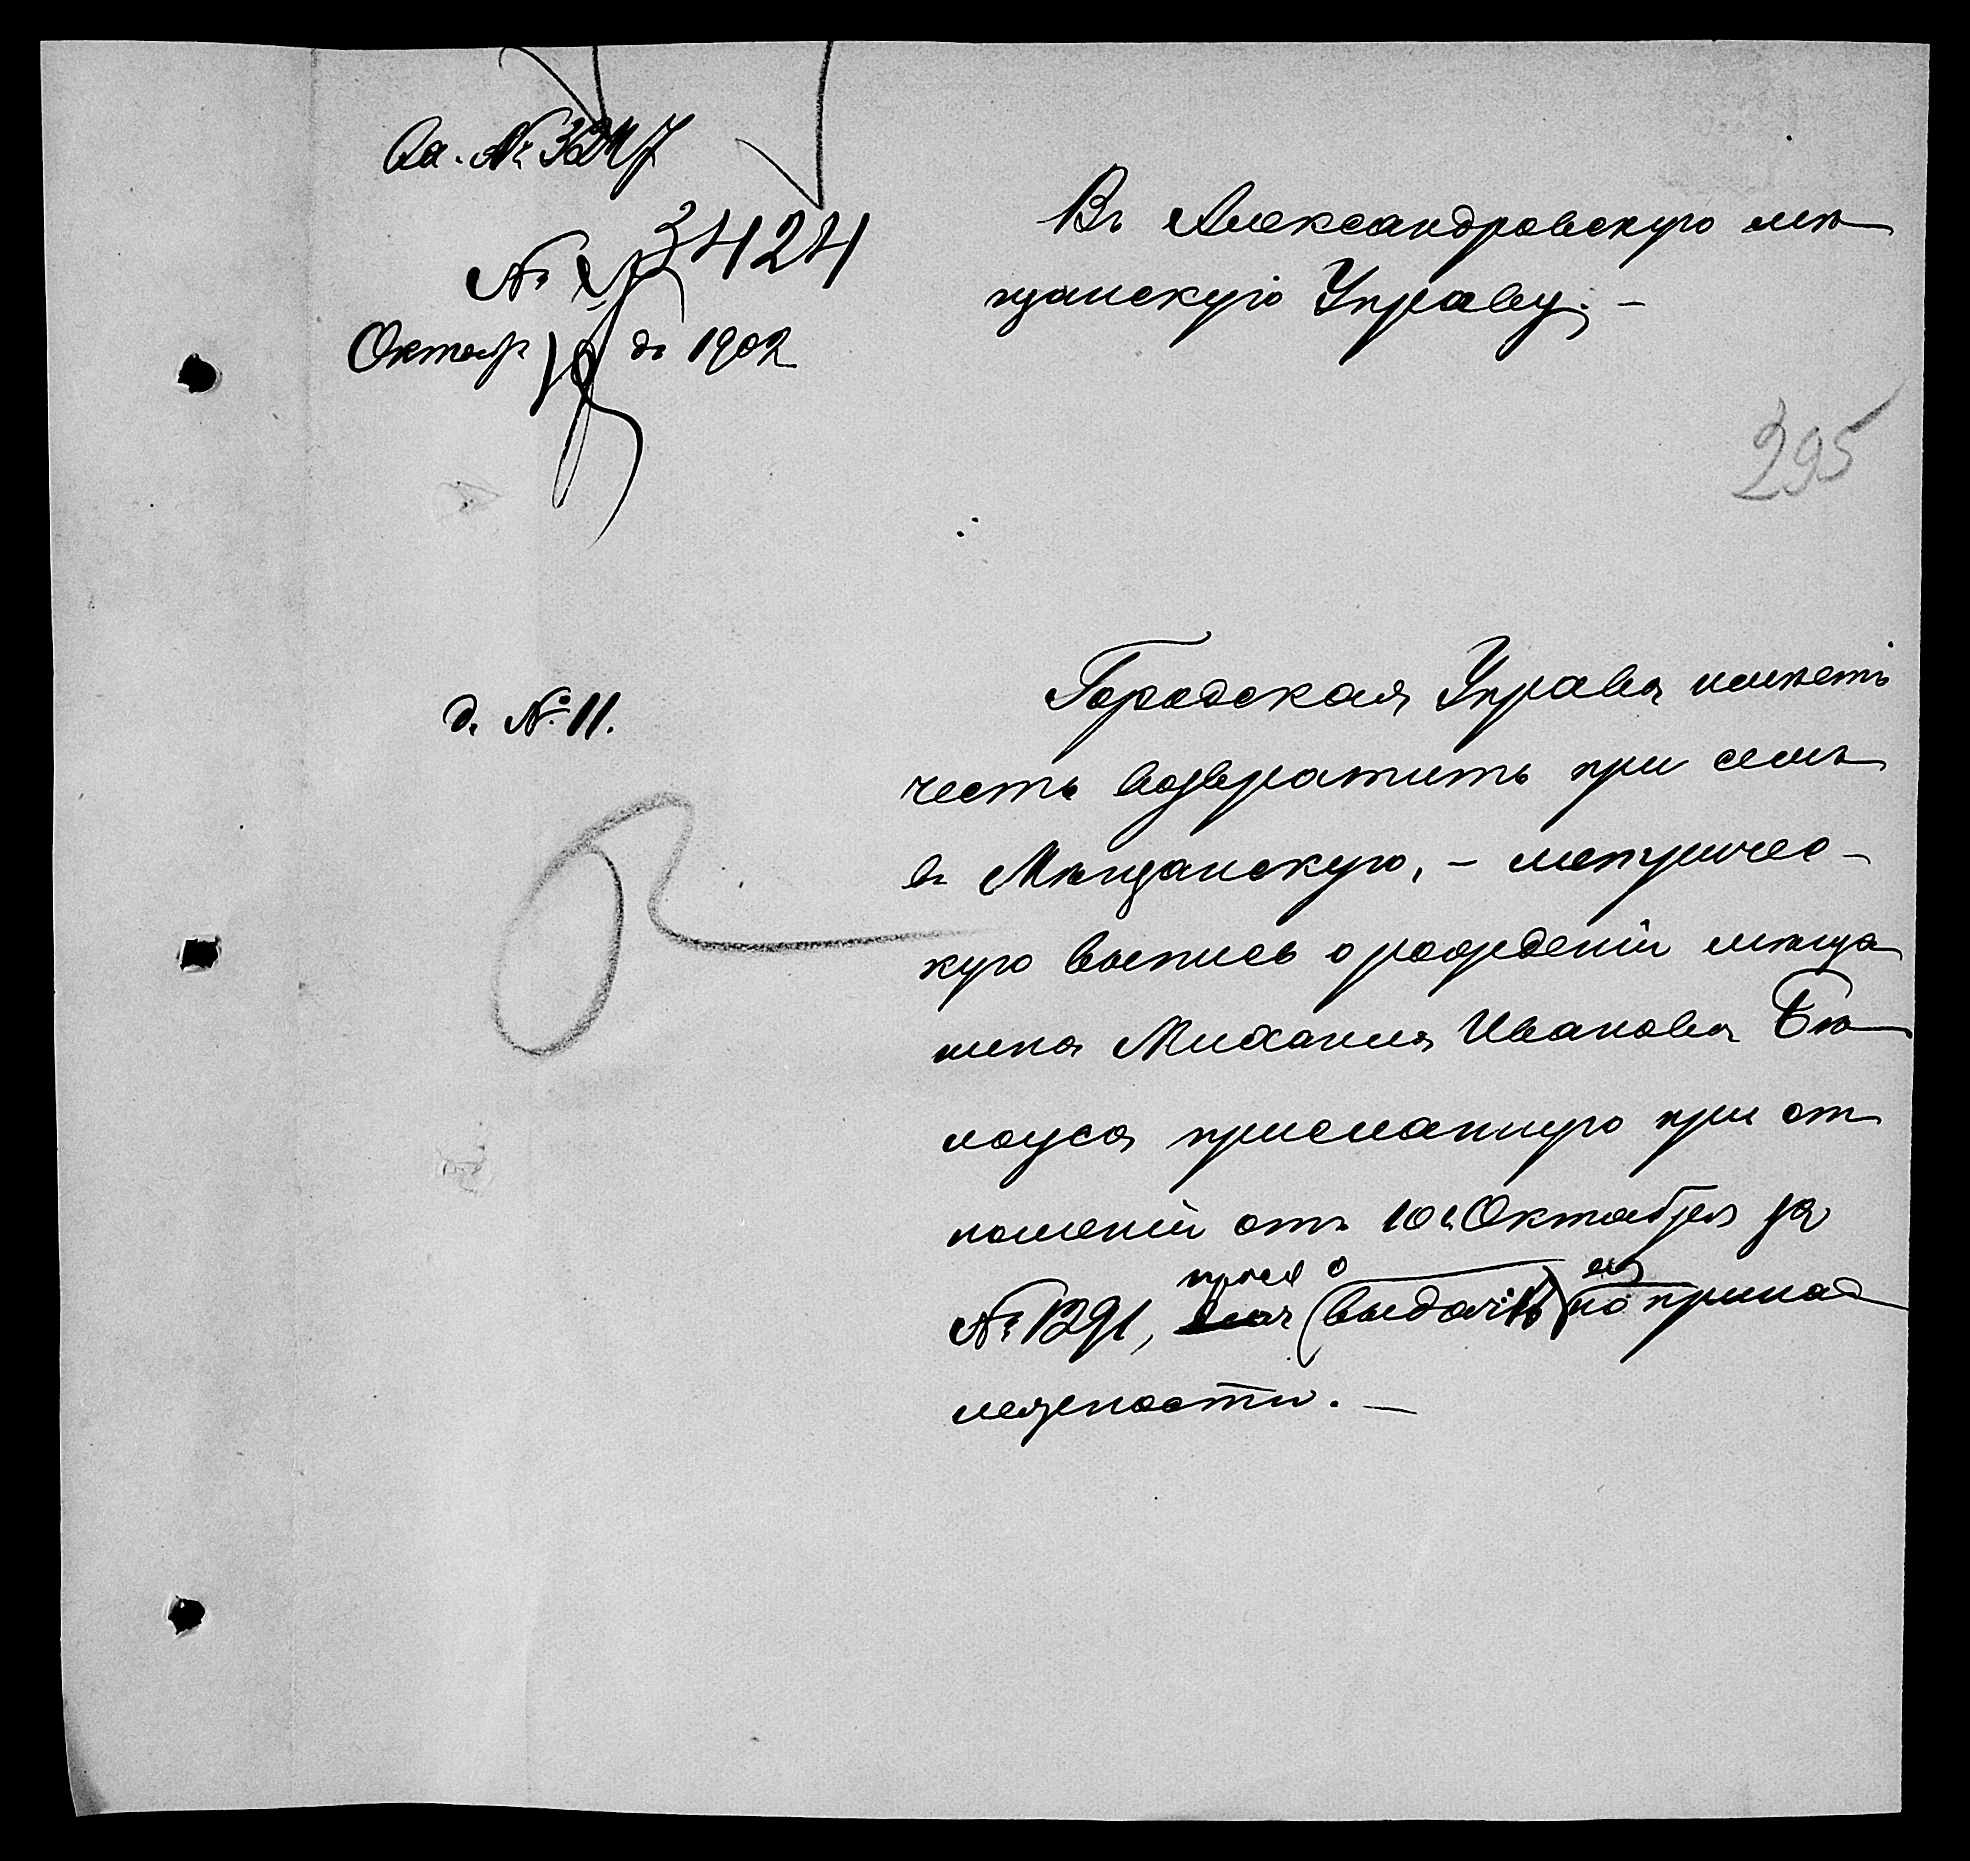 Вх. № 3247
№ 3424
Октября 19 дн 1902
Въ Александровскую мѣ
щанскую Управу. —
295
д. № 11.
Городская Управа имѣетъ
честь возвратить при семъ
въ Мѣщанскую, — метричес-
кую выпись о рожденіи мѣща
нина Михаила Иванова Бѣ
лоуса присланную при от
ношеніи отъ 10 Октября за
прося о ея
№ 1291, для (выдачи) по принад
лежности. —